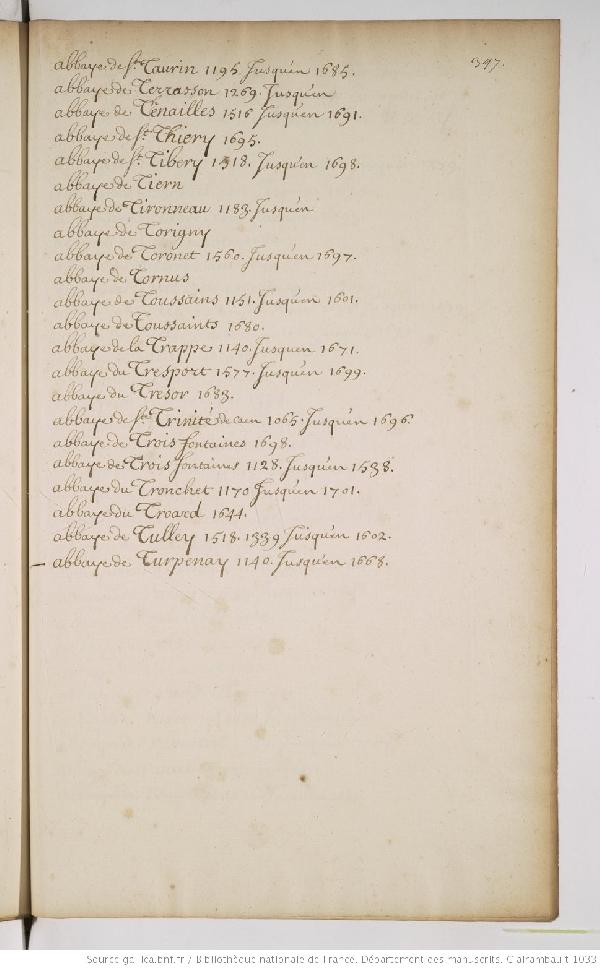 347.
abbaye de st. Taurin 1195 Jusqu'en 1685.
abbaye de Terrasson 1269. Jusqu'en
abbaye de Tenailles 1516 Jusqu'en 1691.
abbaye de st. Thiery 1695.
abbaye de st. Tibery 1318. Jusqu'en 1698.
abbaye de Tiern
abbaye de Tironneau 1183. Jusqu'en
abbaye de Torigny
abbaye de Toronet 1560. Jusqu'en 1697.
abbaye de Tornus
abbaye de Toussains 1151. Jusqu'en 1601.
abbaye de Toussaints 1680.
abbaye de la Trappe 1140. Jusqu'en 1671.
abbaye du Tresport 1577. Jusqu'en 1699.
abbaye du Tresor 1683.
abbaye de ste. Trinité de caen 1065. Jusqu'en 1696.
abbaye de Trois fontaines 1698.
abbaye de Trois fontaines 1128. Jusqu'en 1538.
abbaye du Tronchet 1170 Jusqu'en 1701.
abbaye du Troard 1644.
abbaye de Tulley 1518. 1339 Jusqu'en 1602.
abbaye de Turpenay 1140. Jusqu'en 1668.
Source gallica.bnf.fr / Bibliothèque nationale de France. Département des manuscrits. Clairambault 1033